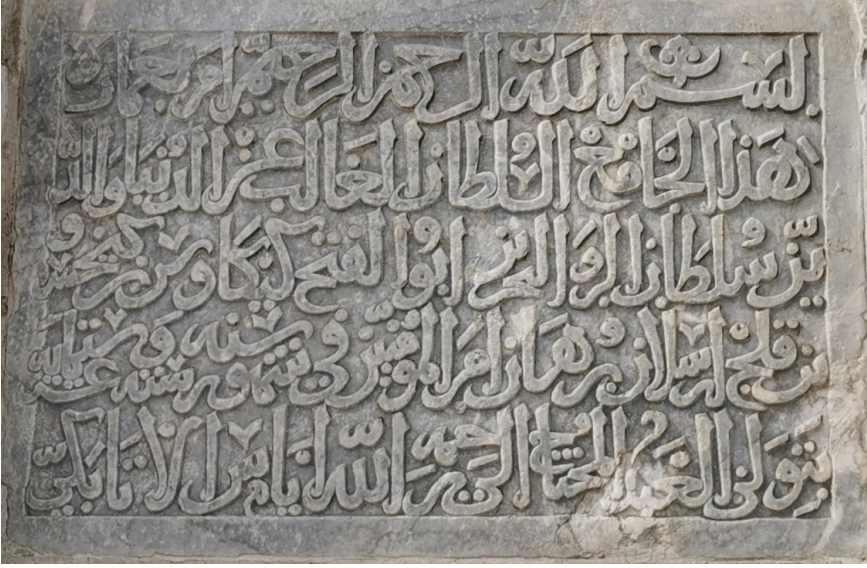 بسم الله الرحمن الرحيم امر بعمارة
هذا الجامع السلطان الغالب عز الدنيا والد
ين سلطان البر والبحرين ابو الفتح كيكاوس بن كيخسرو
بن قلج ارسلان برهان امير المؤمنين فى شهور سنه سته عشر وستمايه
بتولى العبد المحتاج الى رحمه الله اياس الاتابكى